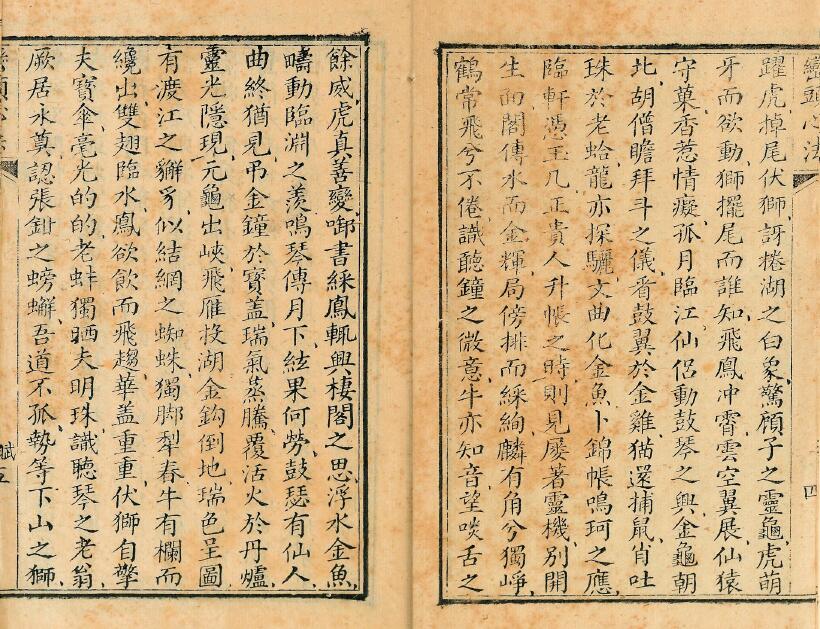 巒頭心法
四
躍虎掉尾伏獅訝捲湖之白象驚顧子之靈龜虎萌
牙而欲動獅擺尾而誰知飛鳳冲霄雲空翼展仙猿
守菓香惹情癡孤月臨江仙侶動鼓琴之興金龜朝
北胡僧瞻拜斗之儀看鼓翼於金雞猫還捕鼠肖吐
珠於老蛤龍亦探驪文曲化金魚卜錦帳鳴珂之應
臨軒憑玉几正貴人升帳之時則見屡著靈機別開
生面閣傳水而金輝局傍排而綵絢麟有角兮獨崢
鶴常飛兮不倦識聽鐘之微意牛亦知音望啖舌之
餘威虎真善變啣書綵鳳輒興棲閣之思浮水金魚
疇動臨淵之羨鳴琴傳月下絃果何勞鼓瑟有仙人
曲終猶見吊金鐘於寶蓋瑞氣蒸騰覆活火於丹爐
靈光隱現元龜出峽飛雁投湖金鈎倒地瑞色呈圖
有渡江之獬豸似結網之蜘蛛獨脚犁春牛有欄而
纔出雙翅臨水鳳欲飲而飛趨華盖重重伏獅自擎
夫寶傘毫光的的老蚌獨晒夫明珠識聽琴之老翁
厥居水奠認張鉗之螃蠏吾道不孤勢等下山之獅
賦五